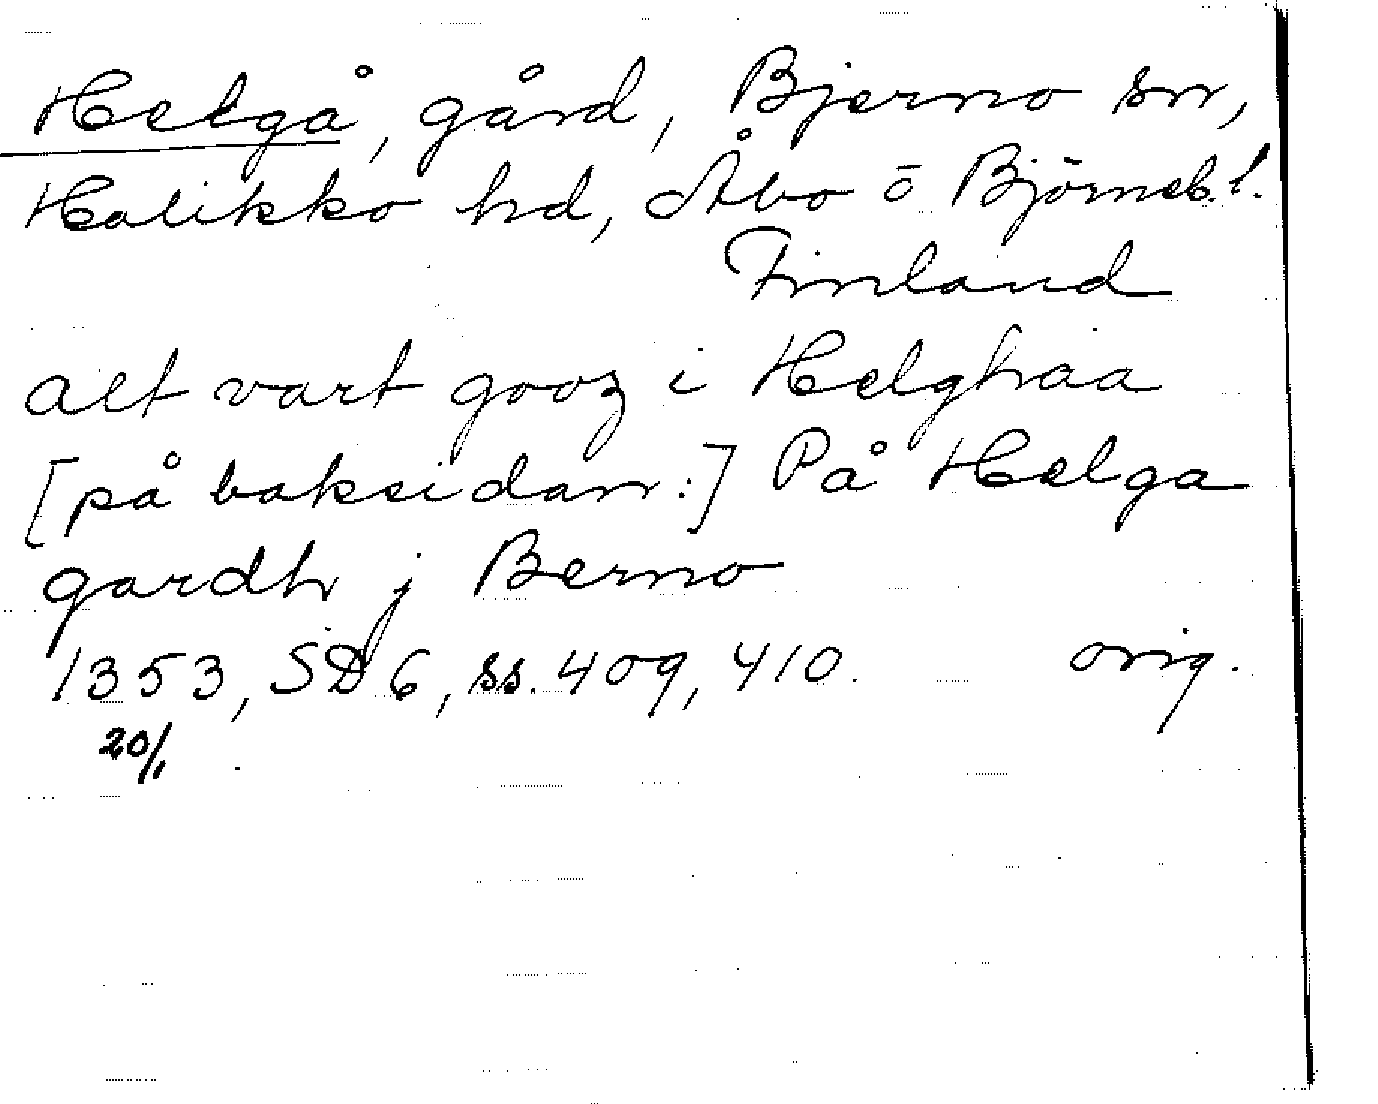 Helgå, gård, Bjerno sn,
Halikko hd, Åbo o Björneb. l.
Finland
alt vart gooz i Helghaa
[på baksidan:] På Helga
gardh j Berno
1353, SD 6, ss. 409, 410. orig.
20/1